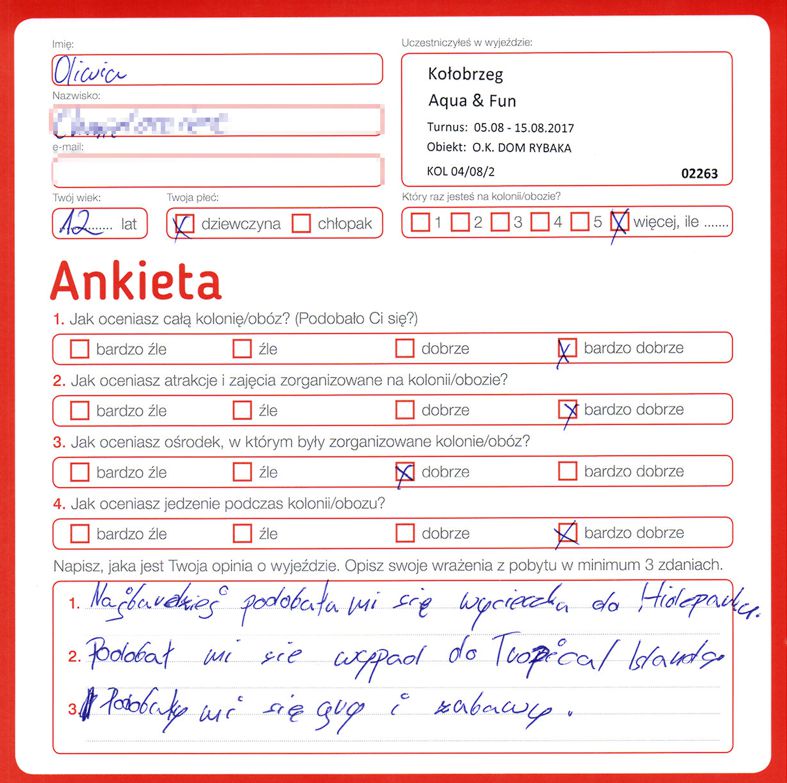 Imię:
Oliwia
Uczestniczyłeś w wyjeździe:
Kołobrzeg
Aqua & Fun
Turnus: 05.08 - 15.08.2017
Obiekt: O.K. DOM RYBAKA
KOL 04/08/2 02263
Nazwisko:
e-mail:
Twój wiek: Twoja płeć: Który raz jesteś na kolonii/obozie?
12 lat dziewczyna chłopak 1 2 3 4 5 więcej, ile .......
Ankieta
1. Jak oceniasz całą kolonię/obóz? (Podobało Ci się?)
bardzo źle źle dobrze bardzo dobrze
2. Jak oceniasz atrakcje i zajęcia zorganizowane na kolonii/obozie?
bardzo źle źle dobrze bardzo dobrze
3. Jak oceniasz ośrodek, w którym były zorganizowane kolonie/obóz?
bardzo źle źle dobrze bardzo dobrze
4. Jak oceniasz jedzenie podczas kolonii/obozu?
bardzo źle źle dobrze bardzo dobrze
Napisz, jaka jest Twoja opinia o wyjeździe. Opisz swoje wrażenia z pobytu w minimum 3 zdaniach.
1. Najbardziej podobała mi się wycieczka do
2. Podobał mi sie wypad do Tropical Islands
3. Podobały mi się gry i zabawy.